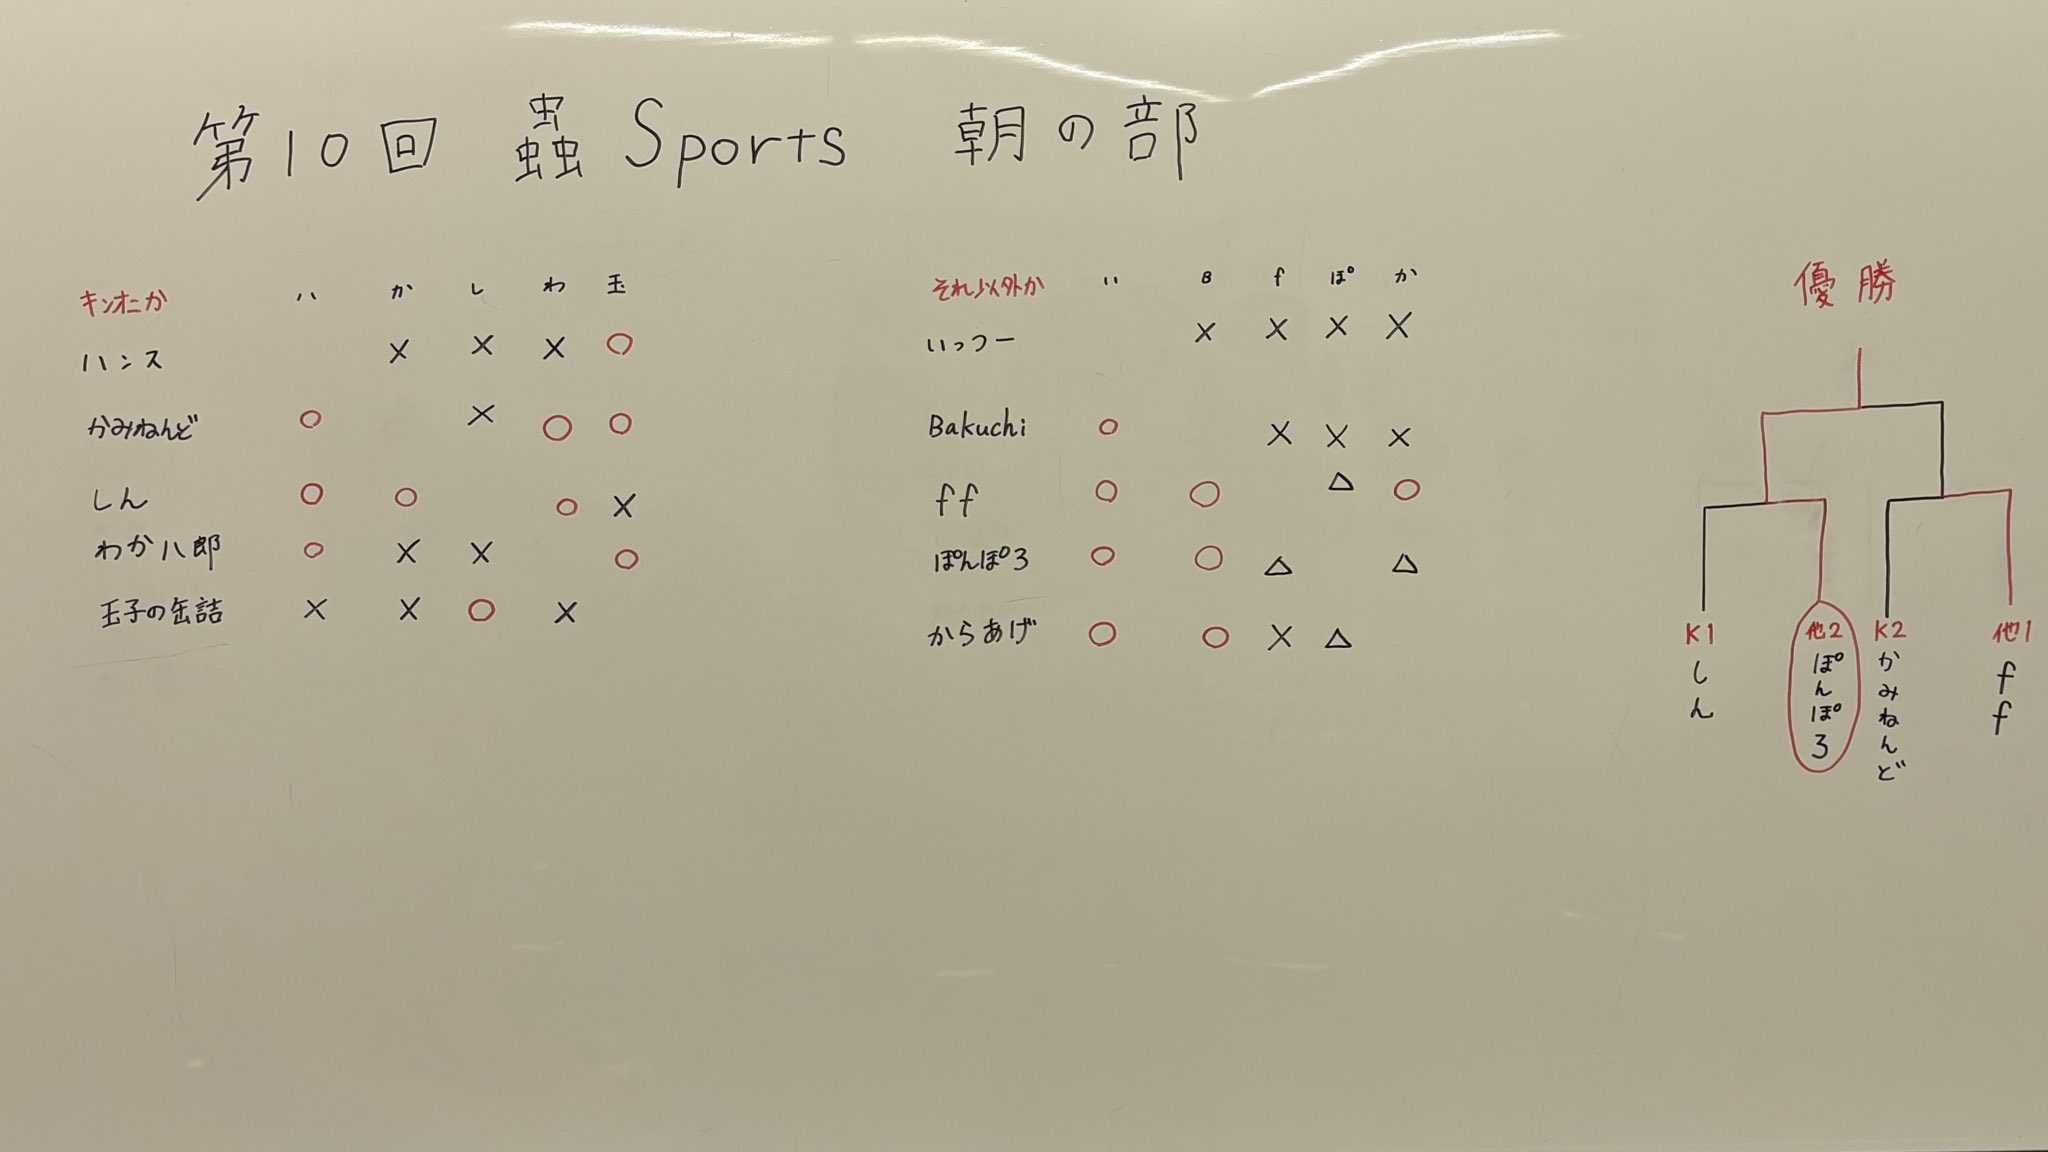 第10回 蟲Sports 朝の部
キンオニか ハ か し わ 玉
ハンス × × × ○
かみねんど ○ × ○ ○
しん ○ ○ ○ ×
わか八郎 ○ × × ○
玉子の缶詰 × × ○ ×
それ以外か い B f ぽ か
いっつー × × × ×
Bakuchi ○ × × ×
ff ○ ○ △ ○
ぽんぽ3 ○ ○ △ △
からあげ ○ ○ × △
優勝
K1
しん
他2
ぽんぽ3
K2
かみねんど
他1
ff